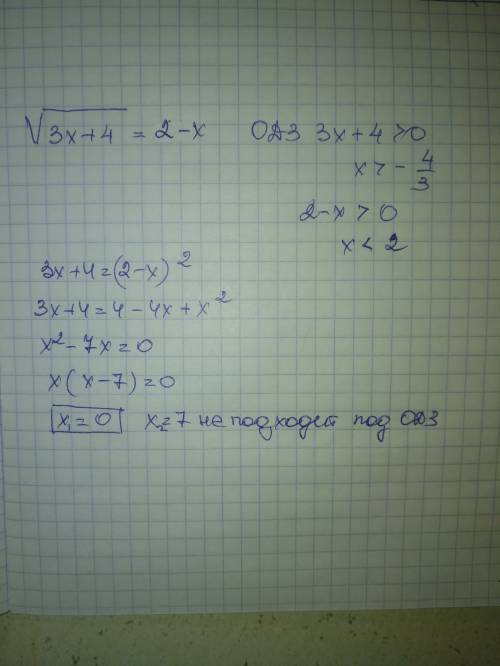 √3x+4 = 2-x ОДЗ 3x+4>0
x > -4/3
2-x > 0
x < 2
3x+4=(2-x)²
3x+4=4-4x+x²
x²-7x=0
x(x-7)=0
x₁=0 x₂=7 не подходит под ОДЗ